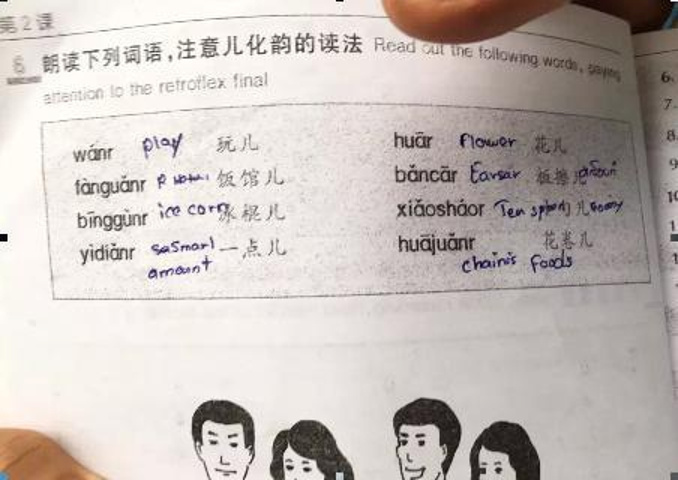 第2课
6 朗读下列词语,注意儿化韵的读法 Read out the following words, paying
attention to the retroflex final
wánr play 玩儿 huār Flower 花儿
fànguǎnr 饭馆儿 bǎncār Earsar 板擦儿
bīnggùnr ice corn 冰棍儿 xiǎosháor Ten 勺儿
yìdiǎnr 一点儿 huājuǎnr 花卷儿
amount chainis foods
6.
7.
8.
9.
10